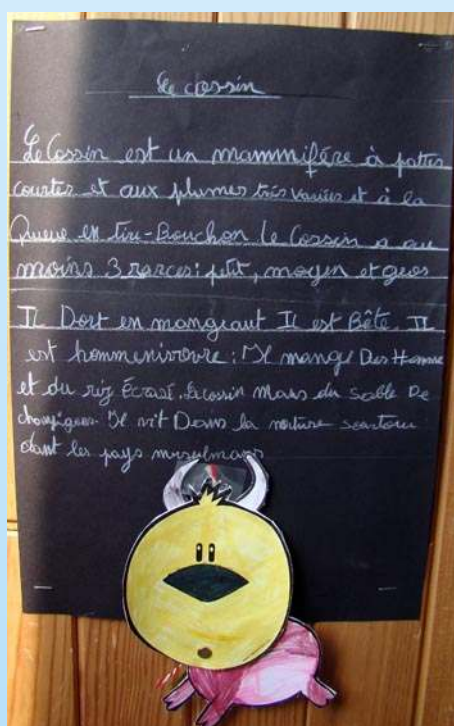 Le cossin
Le Cossin est un mammifère à pattes
courtes et aux plumes très variées et à la
Queue en tire-Bouchon Le Cossin a au
moins 3 rarces: petit, moyen et gros
Il Dort en mangeant Il est Bête. Il
est hommenivovre: Il mange Des Homme
et du riz Écrasé. Le cossin du sable De
Il vit Dans la nature
dant les pays musulmans